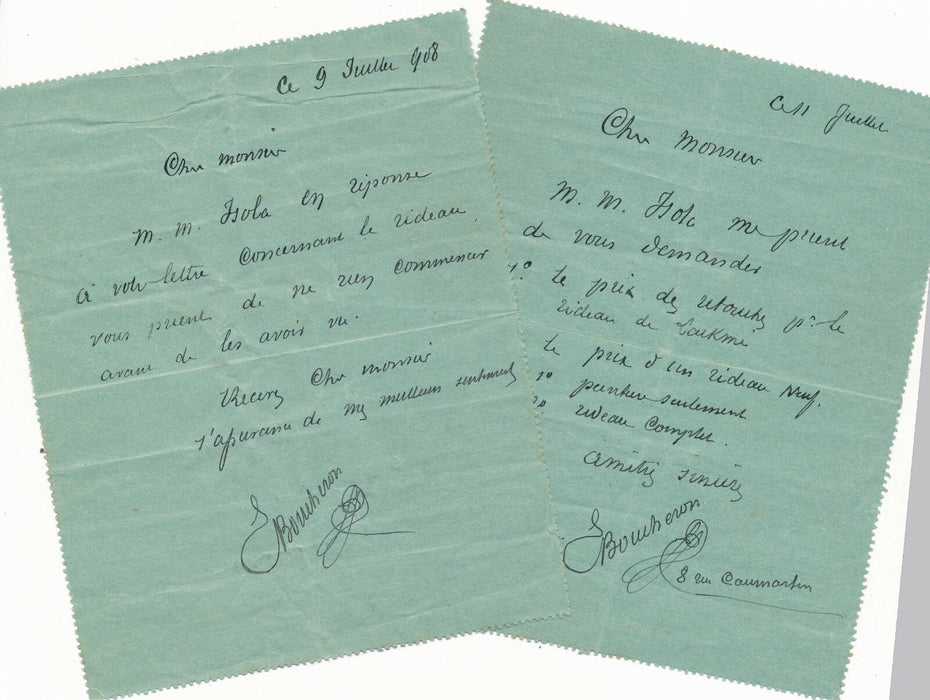 Ce 9 Juillet 908
Cher monsieur
M. M. Isola en réponse
à votre lettre concernant le rideau,
vous prient de ne rien commencer
avant de les avoir vu.
Recevez Cher monsieur
l'assurance de mes meilleurs sentiments
Boucheron
Ce 11 Juillet
Cher Monsieur
M. M. Isola me prient
de vous demander
1º le prix des retouches pr le
rideau de Lackmé
le prix d'un rideau Neuf.
1º peinture seulement
2º rideau Complet.
Amitiés sincères
Boucheron
8 rue Caumartin